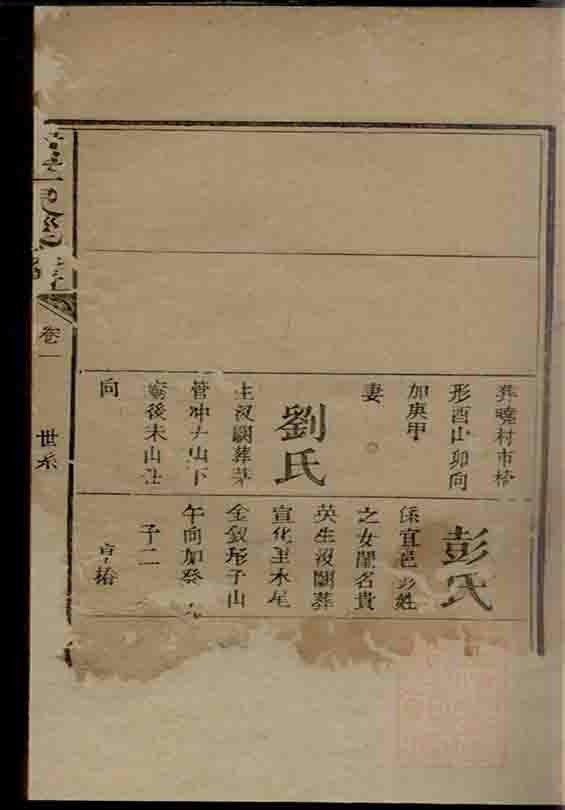 葬曉村市
形酉山卯向
加庚甲
妻
劉氏
生没闕葬茅
管冲 山下
廟後未山
向
彭氏
係宜邑彭姓
之女閨名貴
英生没闕葬
宣化里木尾
金釵形子山
午向加癸
子二
亨椿
卷一
世系